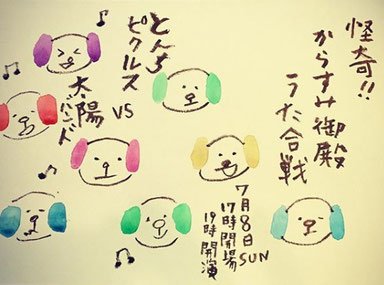 怪奇!!
からすみ御殿
うた合戦
とんちピクルス
VS
太陽バンド
7月8日
SUN
17時開場
19時開演